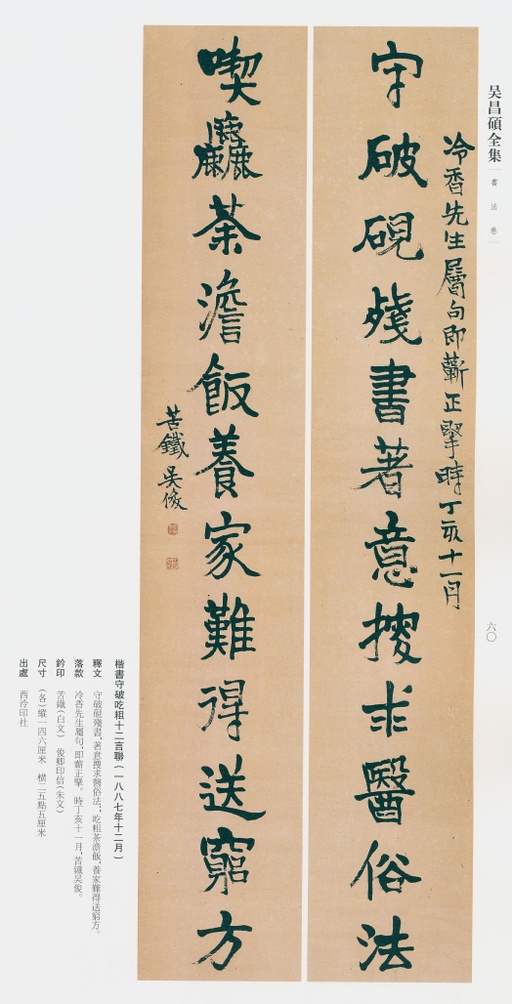 吴昌碩全集
書法卷
六〇
冷香先生屬句即蘄正擥時丁亥十一月
守破硯殘書著意搜求醫俗法
喫麤茶澹飯養家難得送窮方
苦鐵吴俊
楷書守破吃粗十二言聯(一八八七年十二月)
釋文 守破硯殘書,著意搜求醫俗法;吃粗茶澹飯,養家難得送窮方。
落款 冷香先生屬句,即蘄正擥。時丁亥十一月,苦鐵吴俊。
鈐印 苦鐵(白文) 俊卿印信(朱文)
尺寸 (各)縱一四六厘米 橫二五點五厘米
出處 西泠印社